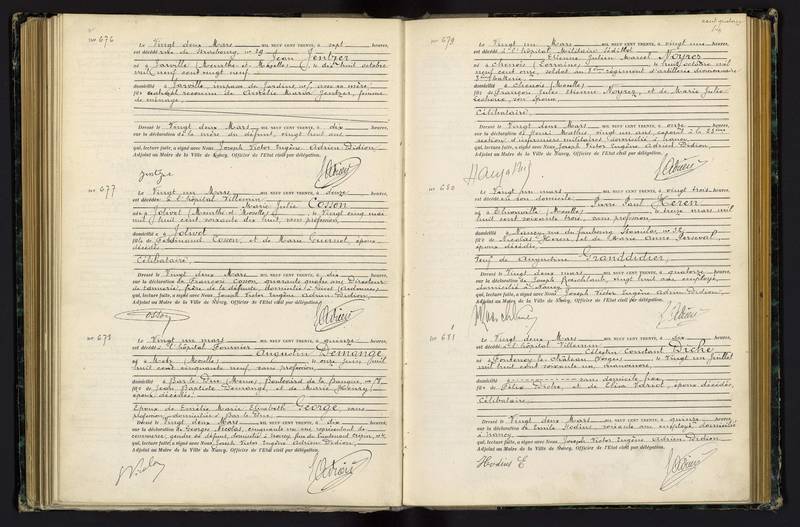 No 676
Le Vingt deux Mars MIL NEUF CENT TRENTE, à sept heures,
est décédé rue de Strasbourg, no 29
Jean Jentzer
né à Jarville (Meurthe et Moselle) le dix huit octobre
mil neuf cent vingt neuf
domicilié à Jarville, impasse de Jardins, no 1, avec sa mère,
fils naturel reconnu de Aurélie Maria Jentzer, femme
de ménage
Dressé le Vingt deux Mars MIL NEUF CENT TRENTE, à dix heures,
sur la déclaration de la mère du défunt, vingt huit ans
qui, lecture faite, a signé avec Nous Joseph Victor Eugène Adrien Didion,
Adjoint au Maire de la Ville de Nancy, Officier de l'Etat civil par délégation.
No 677
Le Vingt un Mars MIL NEUF CENT TRENTE, à douze heures,
est décédée à l'hôpital Villemin
Marie Julie Cosson
née à Jolivet (Meurthe et Moselle) le vingt cinq mai
mil huit cent soixante dix huit, sans profession,
domiciliée à Jolivet
fille de Ferdinand Cosson, et de Marie époux
décédés
Célibataire,
Dressé le Vingt deux Mars MIL NEUF CENT TRENTE, à dix heures,
sur la déclaration de François Cosson, quarante quatre ans Directeur
de tannerie, frère de la défunte, domicilié à Givet (Ardennes)
qui, lecture faite, a signé avec Nous Joseph Victor Eugène Adrien Didion,
Adjoint au Maire de la Ville de Nancy, Officier de l'Etat civil par délégation.
Cosson
No 678
Le Vingt un mars MIL NEUF CENT TRENTE, à quinze heures,
est décédé à l'hôpital Fournier
Augustin Demange
né à Metz (Moselle) le onze juin mil
huit cent cinquante neuf, sans profession
domicilié à Bar le Duc (Meuse), Boulevard de la Banque, no
fils de Jean Baptiste Demange, et de Marie Henry,
époux décédés
Epoux de Emélie Marie Elisabeth George, sans
profession, domiciliée à Bar le Duc
Dressé le Vingt deux Mars MIL NEUF CENT TRENTE, à dix heures,
sur la déclaration de Georges Nicolas, cinquante un ans, représentant de
commerce, gendre du défunt, domicilié à Nancy, rue du Lieutenant
qui, lecture faite, a signé avec Nous Joseph Victor Eugène Adrien Didion,
Adjoint au Maire de la Ville de Nancy, Officier de l'Etat civil par délégation.
No 679
Le Vingt un Mars MIL NEUF CENT TRENTE, à vingt une heures,
est décédé à l'hôpital Militaire Sédillot
Etienne Julien Marcel Noyrez
né à Chenois (Lorraine) le huit octobre mil
neuf cent onze, soldat au régiment d'artillerie divisionnaire
batterie
domicilié à Chenois (Moselle)
fils de François Jules Etienne Noyrez, et de Marie Julie
son épouse
Célibataire,
Dressé le Vingt deux Mars MIL NEUF CENT TRENTE, à onze heures,
sur la déclaration de Henri Mathis, vingt un ans, caporal à la 22ème
section d'infirmiers militaires, domicilié à Nancy
qui, lecture faite, a signé avec Nous Joseph Victor Eugène Adrien Didion
Adjoint au Maire de la Ville de Nancy, Officier de l'Etat civil par délégation.
No 680
Le Vingt un mars MIL NEUF CENT TRENTE, à vingt trois heures,
est décédé en son domicile
Pierre Paul Heren
né à Thionville (Moselle) le treize mars mil
huit cent soixante trois, sans profession
domicilié à Nancy, rue du faubourg Stanislas no 32
fils de Nicolas Heren, et de Marie Anne Perceval,
époux décédés,
Veuf de Augustine Granddidier,
Dressé le Vingt deux mars MIL NEUF CENT TRENTE, à quatorze heures,
sur la déclaration de Joseph vingt huit ans, employé,
domicilié à Nancy
qui, lecture faite, a signé avec Nous Joseph Victor Eugène Adrien Didion,
Adjoint au Maire de la Ville de Nancy, Officier de l'Etat civil par délégation.
No 681
Le Vingt deux Mars MIL NEUF CENT TRENTE, à dix heures,
est décédé à l'hôpital Villemin
Célestin Constant Diché
né à Fontenoy le Château (Vosges) le Vingt un Juillet
mil huit cent soixante un, manœuvre,
domicilié sans domicile fixe
fils de Félix Diché, et de Elisa époux décédés,
Célibataire,
Dressé le Vingt deux Mars MIL NEUF CENT TRENTE, à quinze heures,
sur la déclaration de Emile Hodius, soixante ans employé domicilié
à Nancy
qui, lecture faite, a signé avec Nous Joseph Victor Eugène Adrien Didion
Adjoint au Maire de la Ville de Nancy, Officier de l'Etat civil par délégation.
Hodius E